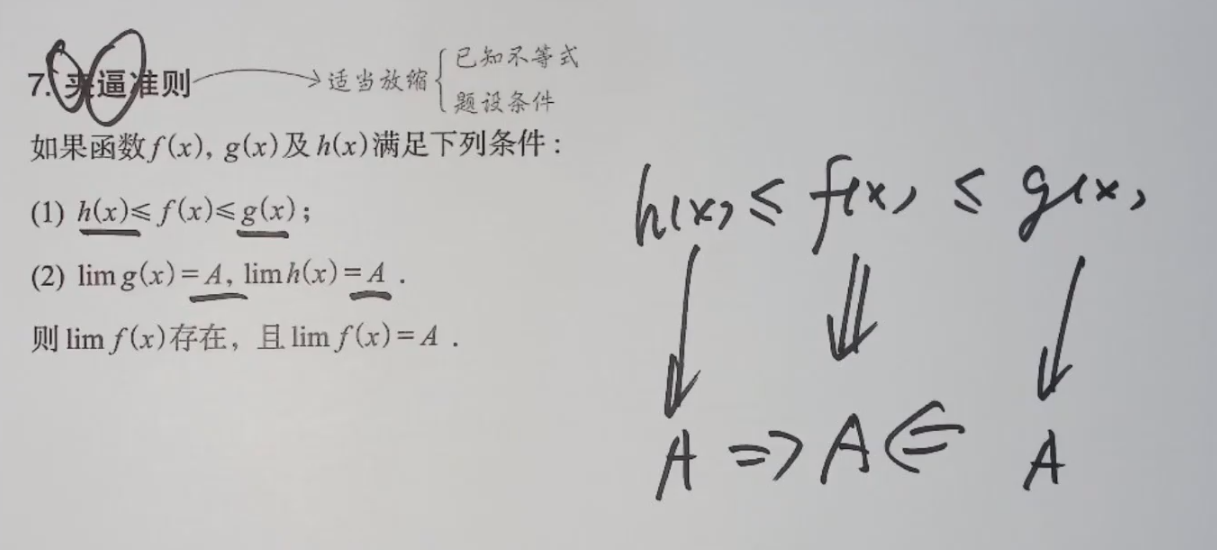 7. 夹逼准则 → 适当放缩 { 已知不等式
题设条件
如果函数 f(x), g(x) 及 h(x) 满足下列条件：
(1) h(x)≤f(x)≤g(x)；
(2) lim g(x)=A, lim h(x)=A .
则 lim f(x) 存在，且 lim f(x)=A .
h(x) ≤ f(x) ≤ g(x)
A ⇒ A ⇐ A